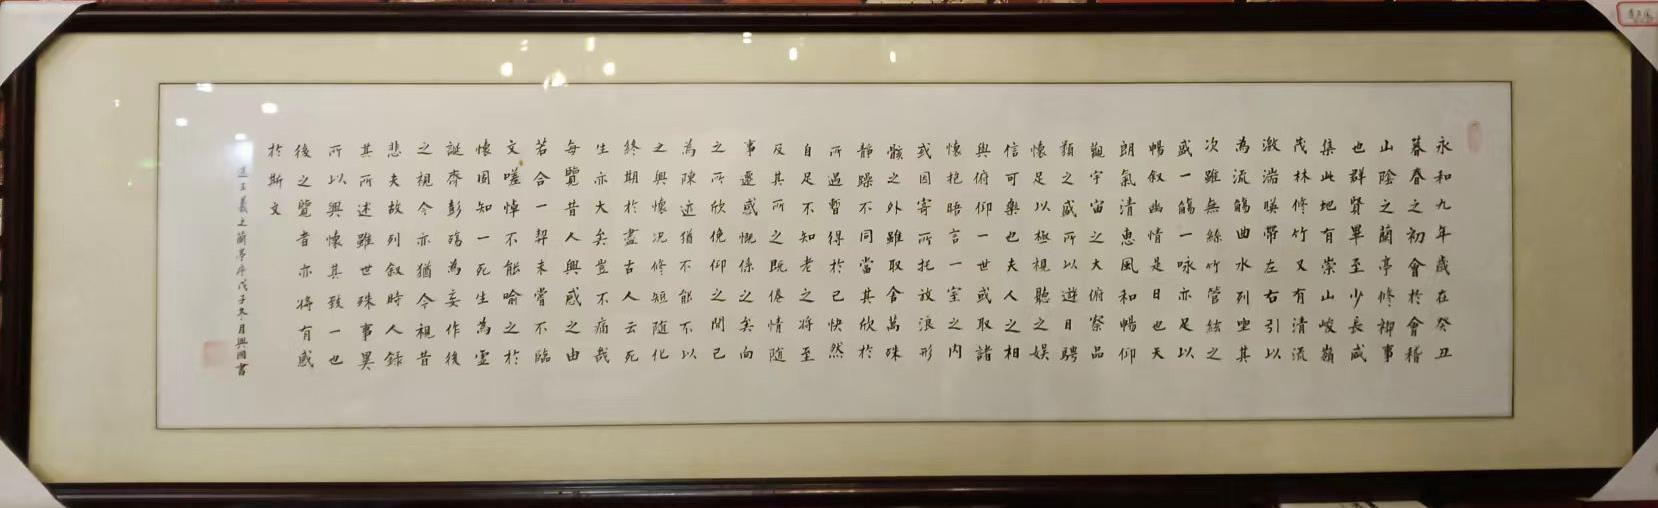 永和九年歲在癸丑
暮春之初會於會稽
山陰之蘭亭修禊事
也群賢畢至少長咸
集此地有崇山峻嶺
茂林修竹又有清流
激湍暎帶左右引以
為流觴曲水列坐其
次雖無絲竹管絃之
盛一觴一咏亦足以
暢叙幽情是日也天
朗氣清惠風和暢仰
觀宇宙之大俯察品
類之盛所以遊目騁
懷足以極視聽之娛
信可樂也夫人之相
與俯仰一世或取諸
懷抱晤言一室之內
或因寄所托放浪形
骸之外雖取舍萬殊
靜躁不同當其欣於
所遇暫得於己快然
自足不知老之將至
及其所之既倦情隨
事遷感慨係之矣向
之所欣俛仰之間已
為陳迹猶不能不以
之興懷況修短隨化
終期於盡古人云死
生亦大矣豈不痛哉
每覽昔人興感之由
若合一契未嘗不臨
文嗟悼不能喻之於
懷固知一死生為虛
誕齊彭殤為妄作後
之視今亦猶今視昔
悲夫故列叙時人錄
其所述雖世殊事異
所以興懷其致一也
後之覽者亦將有感
於斯文
王羲之蘭亭序戊子冬月興國書